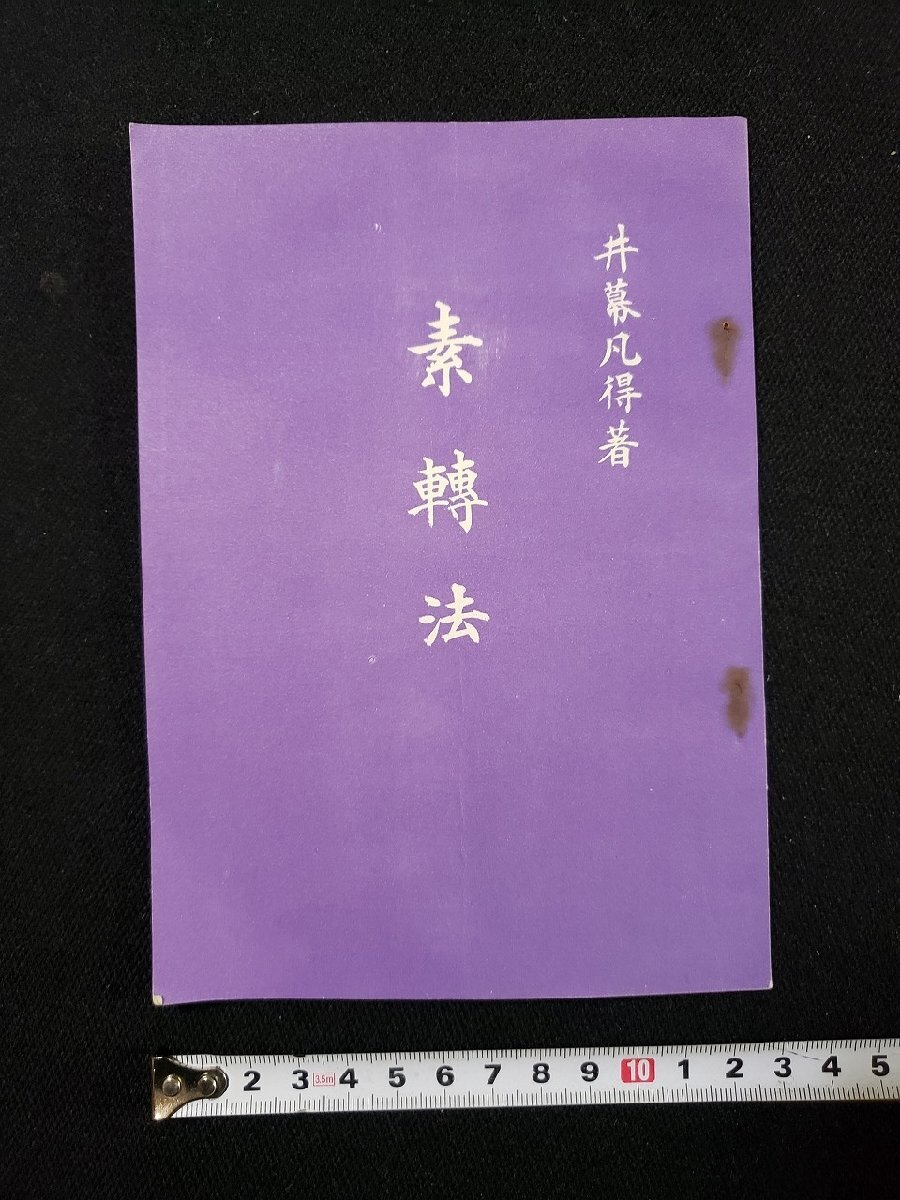 井幕凡得著
素轉法
2 3 3.5m 4 5 6 7 8 9 10 1 2 3 4 5